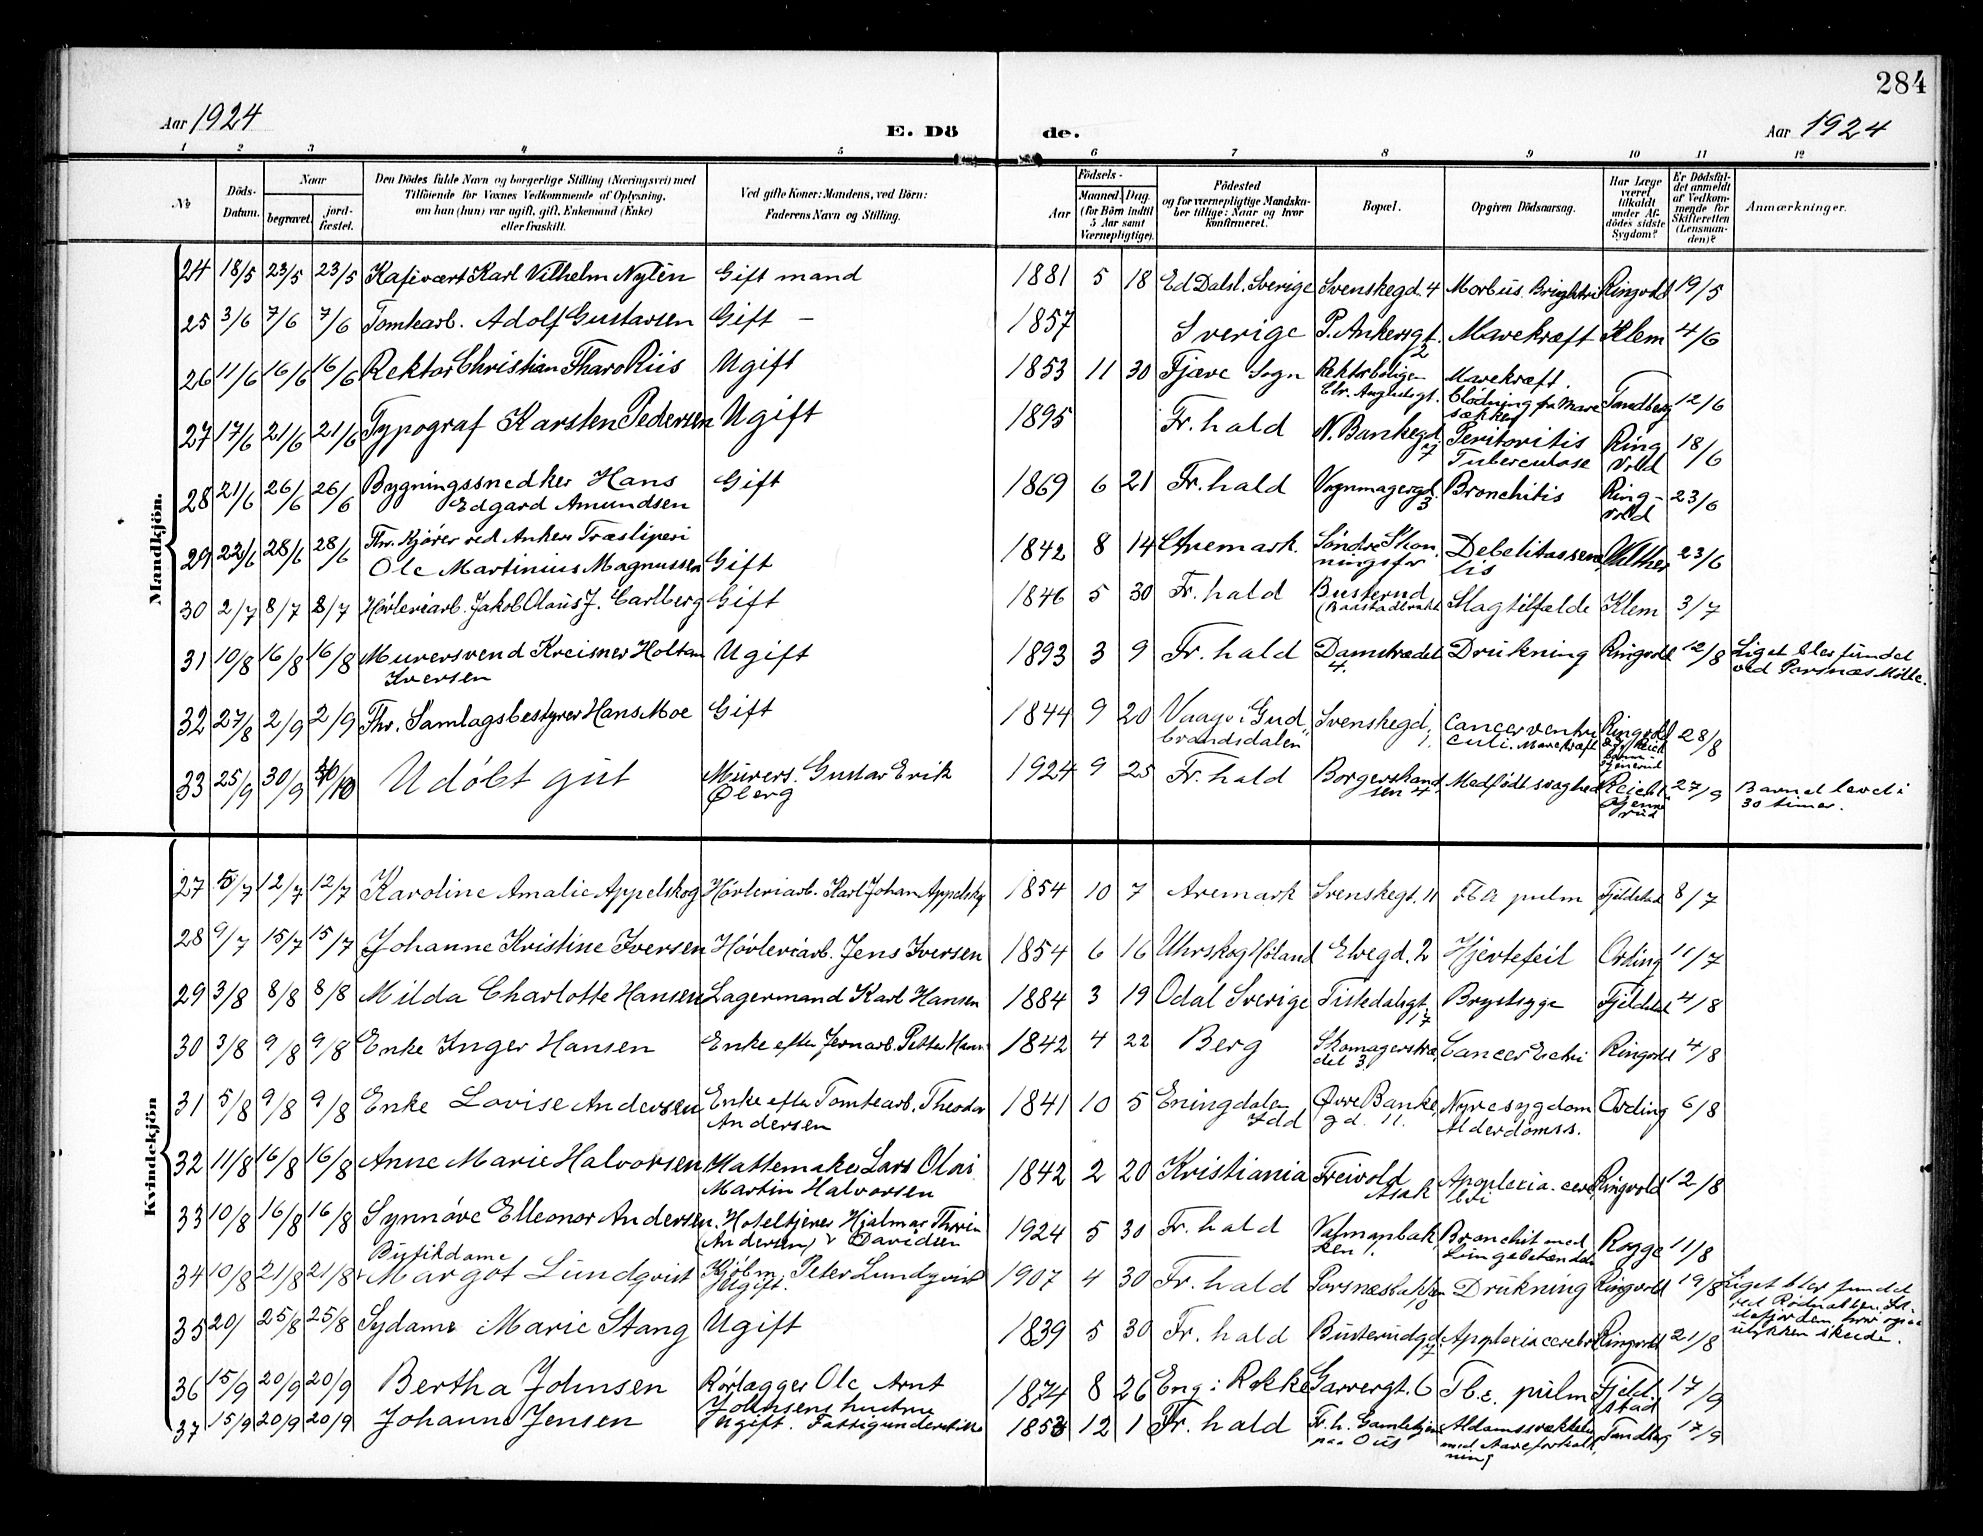 284
Aar 1924
E. Dö de.
Aar 1924
1 2 3 4 5 6 7 8 9 10 11 12
№
Döds-Datum.
Naar
begravet.
jord-fæstet.
Den Dödes fulde Navn og borgerlige Stilling (Næringsvei) med
Tilföiende for Voxnes Vedkommende af Oplysning,
om han (hun) var ugift, gift, Enkemand (Enke)
eller fraskilt.
Ved gifte Koner: Mandens, ved Börn:
Faderens Navn og Stilling.
Födsels-
Aar
Maaned. Dag.
(for Börn indtil
5 Aar samt
Værnepligtige).
Födested
og for værnepligtige Mandska-
ber tillige: Naar og hvor
konfirmeret.
Bopæl.
Opgiven Dödsaarsag.
Har Læge
været
tilkaldt
under Af-
dödes sidste
Sygdom?
Er Dödsfal-
det anmeldt
af Vedkom-
mende for
Skifteretten
(Lensman-
den)?
Anmærkninger.
Mandkjön.
24 18/5 23/5 23/5 Kafévært Karl Vilhelm Nylén Gift mand 1881 5 18 Ed Dalsl. Sverige Svenskegd. 4 Morbus Brightii Ringvold 19/5
25 3/6 7/6 7/6 Tomtearb. Adolf Gustavsen Gift – 1857 Sverige P. Ankersgt. 2 Mavekræft Klem 4/6
26 11/6 16/6 16/6 Rektor Christian Tharo Riis Ugift 1853 11 30 Tjære Sogn Rektorboligen
Chr. Augustsgt. Mavekræft.
Blödning fra Mave
sækken Tandberg 12/6
27 17/6 21/6 21/6 Typograf Karsten Pedersen Ugift 1895 Fr. hald N. Bankegd. 7 Peritoritis
Tuberculose Ring
vold 18/6
28 21/6 26/6 26/6 Bygningssnedker Hans
Edgard Amundsen Gift 1869 6 21 Fr. hald Vognmagergd. 3 Bronchitis Ring-
vold 23/6
29 22/6 28/6 28/6 Fhv. Kjörer ved Ankers Træsliperi
Ole Martinius Magnussen Gift 1842 8 14 Aremark. Söndre Skon
ningsfor Debelitassene
lis Walther 23/6
30 2/7 8/7 8/7 Hövleriarb. Jakob Olaus J. Carlberg Gift 1846 5 30 Fr. hald Busterud Slagtilfælde Klem 3/7
31 10/8 16/8 16/8 Murersvend Kreisner Holtan
Iversen Ugift 1893 3 9 Fr. hald Damstrædet
4. Drukning Ringvold 12/8 Liget blev fundet
ved Porsnæs Mölle.
32 27/8 2/9 2/9 Fhv. Samlagsbestyrer Hans Moe Gift 1844 9 20 Vaage i Gud
brandsdalen Svenskegd.
1. Cancer ventri
culi. Mavekræft Ringvold 28/8
33 25/9 30/9 30/10 Udöbt gut Murers. Gustav Erik
Öberg 1924 9 25 Fr. hald Borgerskand
sen 4 Medfödt svaghed Reichl
Gjemme
rud 27/9 Barnet levet i
30 timer.
Kvindekjön
27 5/7 12/7 12/7 Karoline Amalie Appelskog Hövleriarb. Karl Johan Appelskog 1854 10 7 Aremark Svenskegt. 11 Tba pulm Fjeldstad 8/7
28 9/7 15/7 15/7 Johanne Kristine Iversen Hövleriarb. Jens Iversen 1854 6 16 Uhrskog Höland Elvegd. 2 Hjertefeil Ording 11/7
29 3/8 8/8 8/8 Milda Charlotte Hansen Lagermand Karl Hansen 1884 3 19 Odal Sverige Tistedalsgt.
17 Brystsyge Fjeldstad 4/8
30 3/8 9/8 9/8 Enke Inger Hansen Enke efter Jernarb. Petter Hans 1842 4 22 Berg Skomagerstræ
det 3. Cancer Ectri Ringvold 4/8
31 5/8 9/8 9/8 Enke Lovise Andersen Enke efter Tomtearb. Theodor
Andersen 1841 10 5 Eningdalen
Idd Övre Banke
gd. 11. Nyresygdom
Alderdomss. Ording 6/8
32 11/8 16/8 16/8 Anne Marie Halvorsen Mattemaker Lars Olai
Martin Halvorsen 1842 2 20 Kristiania Freivold
Asak Apoplexia cere
bri Ringvold 12/8
33 10/8 16/8 16/8 Synnöve Elleonor Andersen. Hoteltjener Hjalmar Thorin
(Andersen) & Davidsen 1924 5 30 Fr. hald Valmanbak
ken 1. Bronchit med
Lungebetændelse Rogge 11/8
34 10/8 21/8 21/8 Butikdame
Margot Lundqvist Kjöbm. Peter Lundqvist
Ugift. 1907 4 30 Fr. hald Porsnæsbakken
10 Drukning Ringvold 19/8 Liget blev fundet
ved Rödnabben, Id-
defjorden, hvor ogsaa
ulykken skede.
35 20/ 25/8 25/8 Sydame Marie Stang Ugift 1839 5 30 Fr. hald Busterudgd.
7. Apoplexia cerebri Ringvold 21/8
36 15/9 20/9 20/9 Bertha Johnsen Rörlægger Ole Arnt
Johnsens hustru 1874 8 26 Eng i Rokke Garvergt. 6 Tb.c. pulm Fjeld
stad 17/9
37 15/9 20/9 20/9 Johanne Jensen Ugift. Fattigunderstöt. 1853 12 1 Fr. hald Fr. h. Gamlehjem
paa Ous Aldomssvækkelse
med Aareforkalk
ning Tandberg 17/9